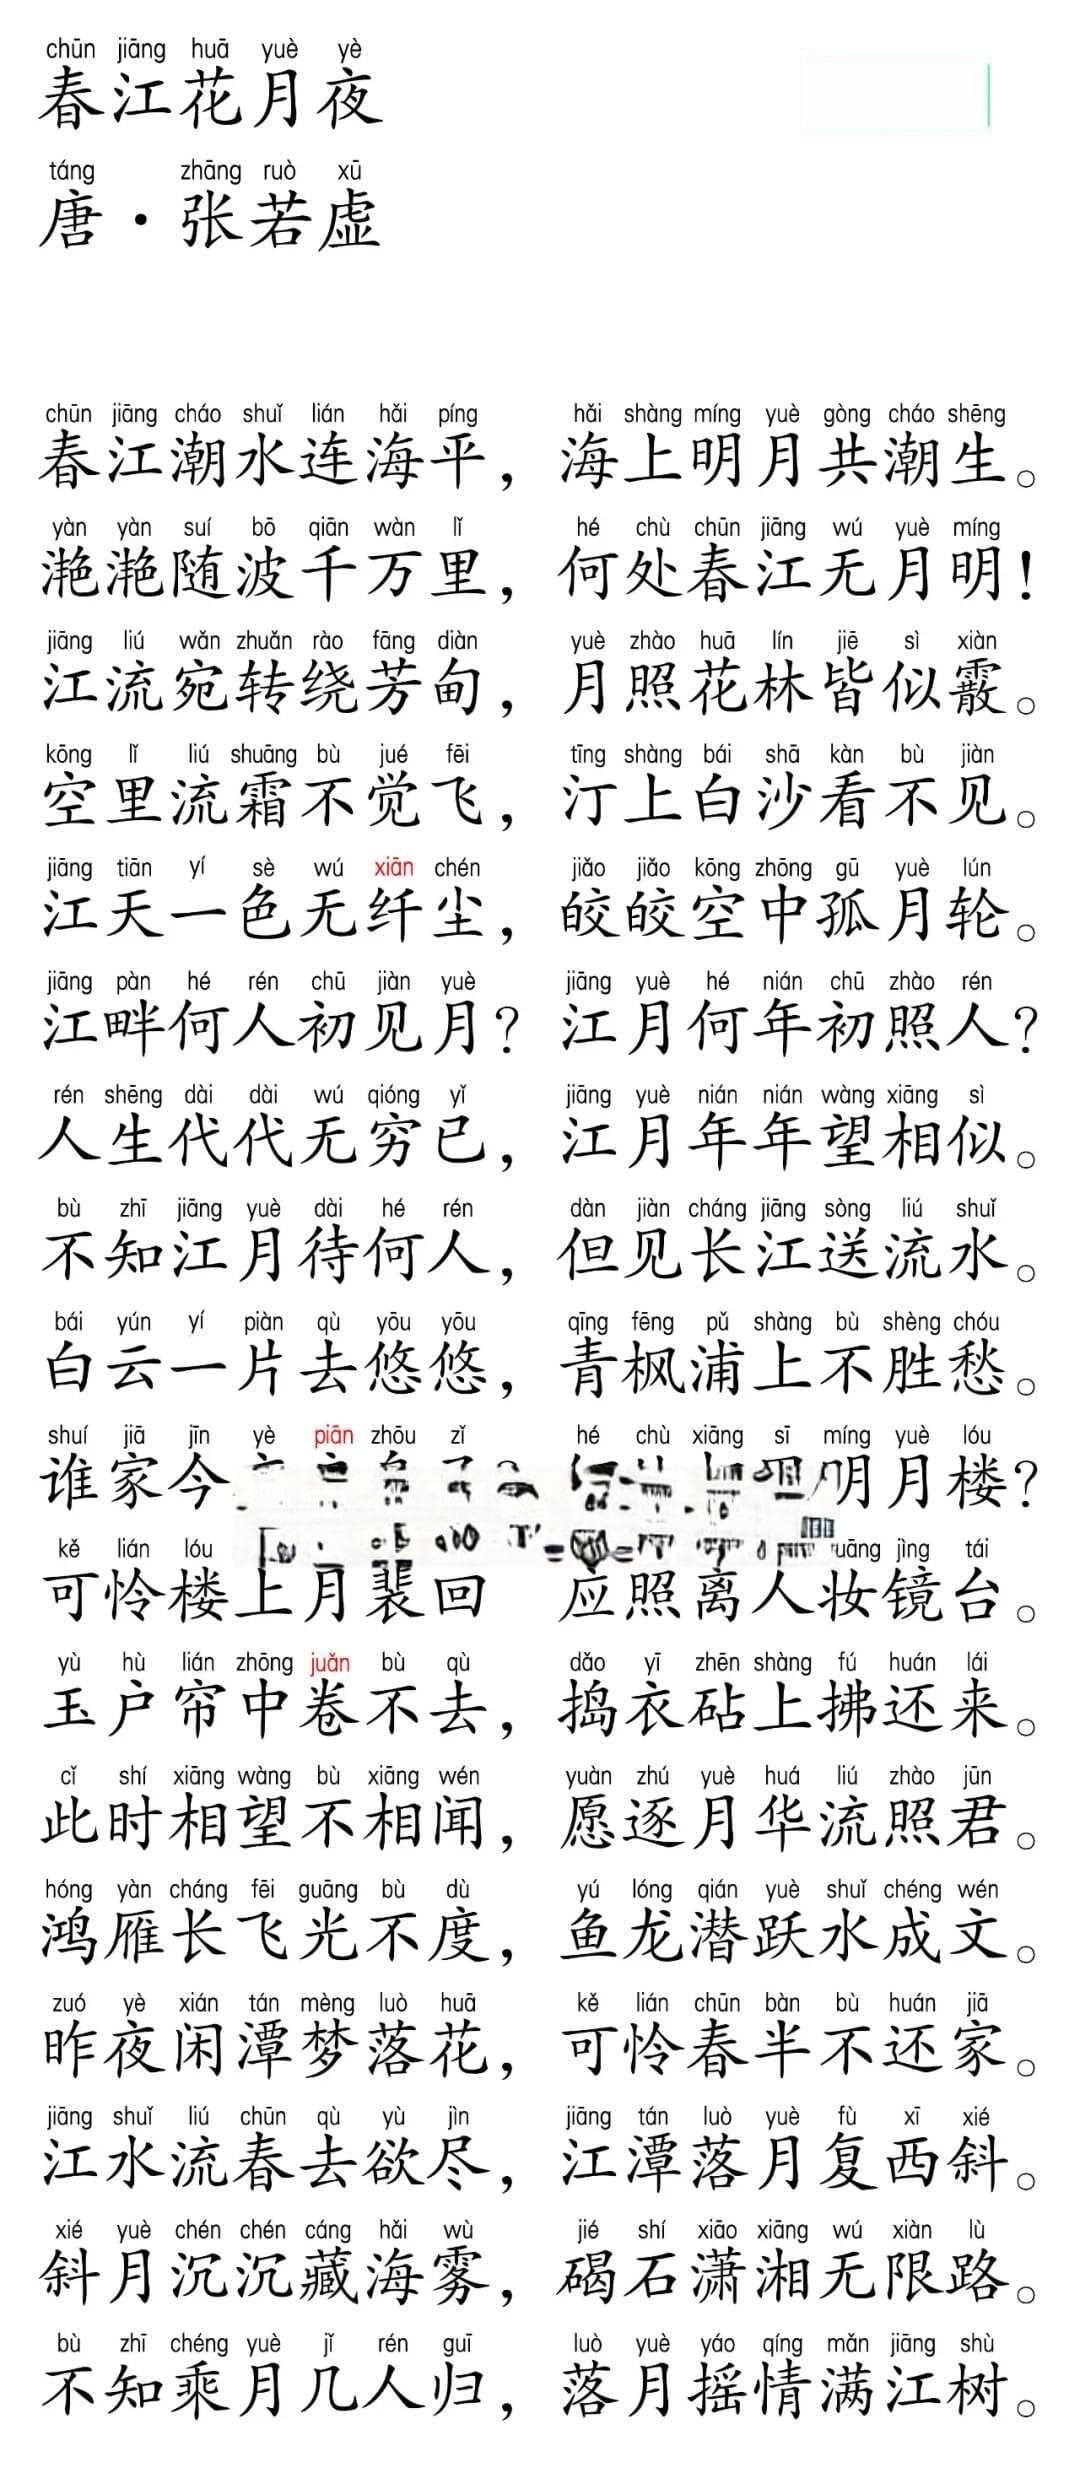 chūn jiāng huā yuè yè
春江花月夜
táng zhāng ruò xū
唐·张若虚
chūn jiāng cháo shuǐ lián hǎi píng hǎi shàng míng yuè gòng cháo shēng
春江潮水连海平，海上明月共潮生。
yàn yàn suí bō qiān wàn lǐ hé chù chūn jiāng wú yuè míng
滟滟随波千万里，何处春江无月明！
jiāng liú wǎn zhuǎn rào fāng diàn yuè zhào huā lín jiē sì xiàn
江流宛转绕芳甸，月照花林皆似霰。
kōng lǐ liú shuāng bù jué fēi tīng shàng bái shā kàn bù jiàn
空里流霜不觉飞，汀上白沙看不见。
jiāng tiān yí sè wú xiān chén jiǎo jiǎo kōng zhōng gū yuè lún
江天一色无纤尘，皎皎空中孤月轮。
jiāng pàn hé rén chū jiàn yuè jiāng yuè hé nián chū zhào rén
江畔何人初见月？江月何年初照人？
rén shēng dài dài wú qióng yǐ jiāng yuè nián nián wàng xiāng sì
人生代代无穷已，江月年年望相似。
bù zhī jiāng yuè dài hé rén dàn jiàn cháng jiāng sòng liú shuǐ
不知江月待何人，但见长江送流水。
bái yún yí piàn qù yōu yōu qīng fēng pǔ shàng bù shèng chóu
白云一片去悠悠，青枫浦上不胜愁。
shuí jiā jīn yè piān zhōu zǐ hé chù xiāng sī míng yuè lóu
谁家今 明月楼？
kě lián lóu jìng tái
可怜楼上月裴回 应照离人妆镜台。
yù hù lián zhōng juǎn bù qù dǎo yī zhēn shàng fú huán lái
玉户帘中卷不去，捣衣砧上拂还来。
cǐ shí xiāng wàng bù xiāng wén yuàn zhú yuè huá liú zhào jūn
此时相望不相闻，愿逐月华流照君。
hóng yàn cháng fēi guāng bù dù yú lóng qián yuè shuǐ chéng wén
鸿雁长飞光不度，鱼龙潜跃水成文。
zuó yè xián tán mèng luò huā kě lián chūn bàn bù huán jiā
昨夜闲潭梦落花，可怜春半不还家。
jiāng shuǐ liú chūn qù yù jìn jiāng tán luò yuè fù xī xié
江水流春去欲尽，江潭落月复西斜。
xié yuè chén chén cáng hǎi wù jié shí xiāo xiāng wú xiàn lù
斜月沉沉藏海雾，碣石潇湘无限路。
bù zhī chéng yuè jǐ rén guī luò yuè yáo qíng mǎn jiāng shù
不知乘月几人归，落月摇情满江树。